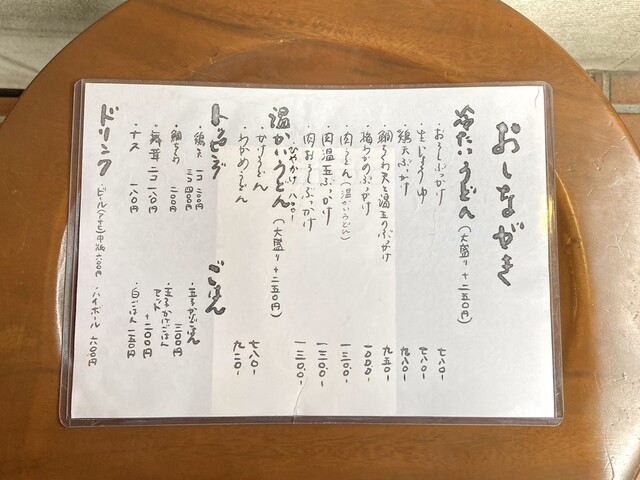 おしながき
冷たいうどん（大盛り＋二五〇円）
・おろしぶっかけ 七八〇-
・生じょうゆ 七八〇-
・鶏天ぶっかけ 九八〇-
・鯛ちくわ天と温玉のぶっかけ 九五〇-
・梅わかめぶっかけ 一〇〇〇-
・肉うどん（温かいうどん） 一三〇〇-
・肉温玉ぶっかけ 一三〇〇-
・肉おろしぶっかけ 一三〇〇-
ひやかけ 八〇〇-
温かいうどん（大盛り＋二五〇円）
・かけうどん 七八〇-
・わかめうどん 九二〇-
トッピング
・鶏天 一コ 二〇〇円
三コ 四〇〇円
・鯛ちくわ 二〇〇円
・舞茸 二コ 一八〇円
・ナス 一八〇円
ごはん
・玉子かけごはん 三〇〇円
・玉子かけごはん
セット ＋二〇〇円
・白ごはん 一五〇円
ドリンク
・ビール（アサヒ）中瓶 六〇〇円 ・ハイボール 六〇〇円